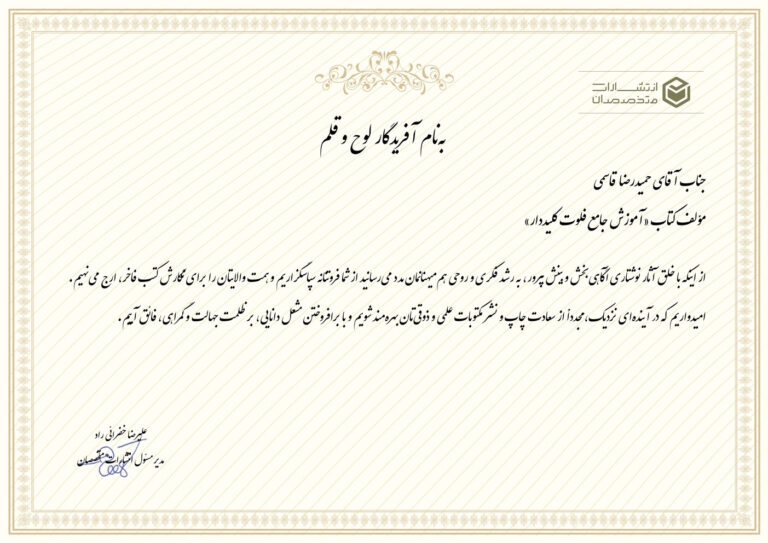 انتشارات
متخصصان
به‌نام آفریدگار لوح و قلم
جناب آقای حمیدرضا قاسمی
مؤلف کتاب «آموزش جامع فلوت کلیددار»
از اینکه با خلق آثار نوشتاری آگاهی‌بخش و بینش پرور، به رشد فکری و روحی هم میهنانمان مدد می‌رسانید از شما فروتنانه سپاسگزاریم و همت والایتان را برای نگارش کتب فاخر، ارج می‌نهیم.
امیدواریم که در آینده‌ای نزدیک، مجدداً از سعادت چاپ و نشر مکتوبات علمی و ذوقی‌تان بهره‌مند شویم و با برافروختن مشعل دانایی، بر ظلمت جهالت و گمراهی، فائق آییم.
علیرضا خضرائی راد
مدیر مسئول انتشارات متخصصان